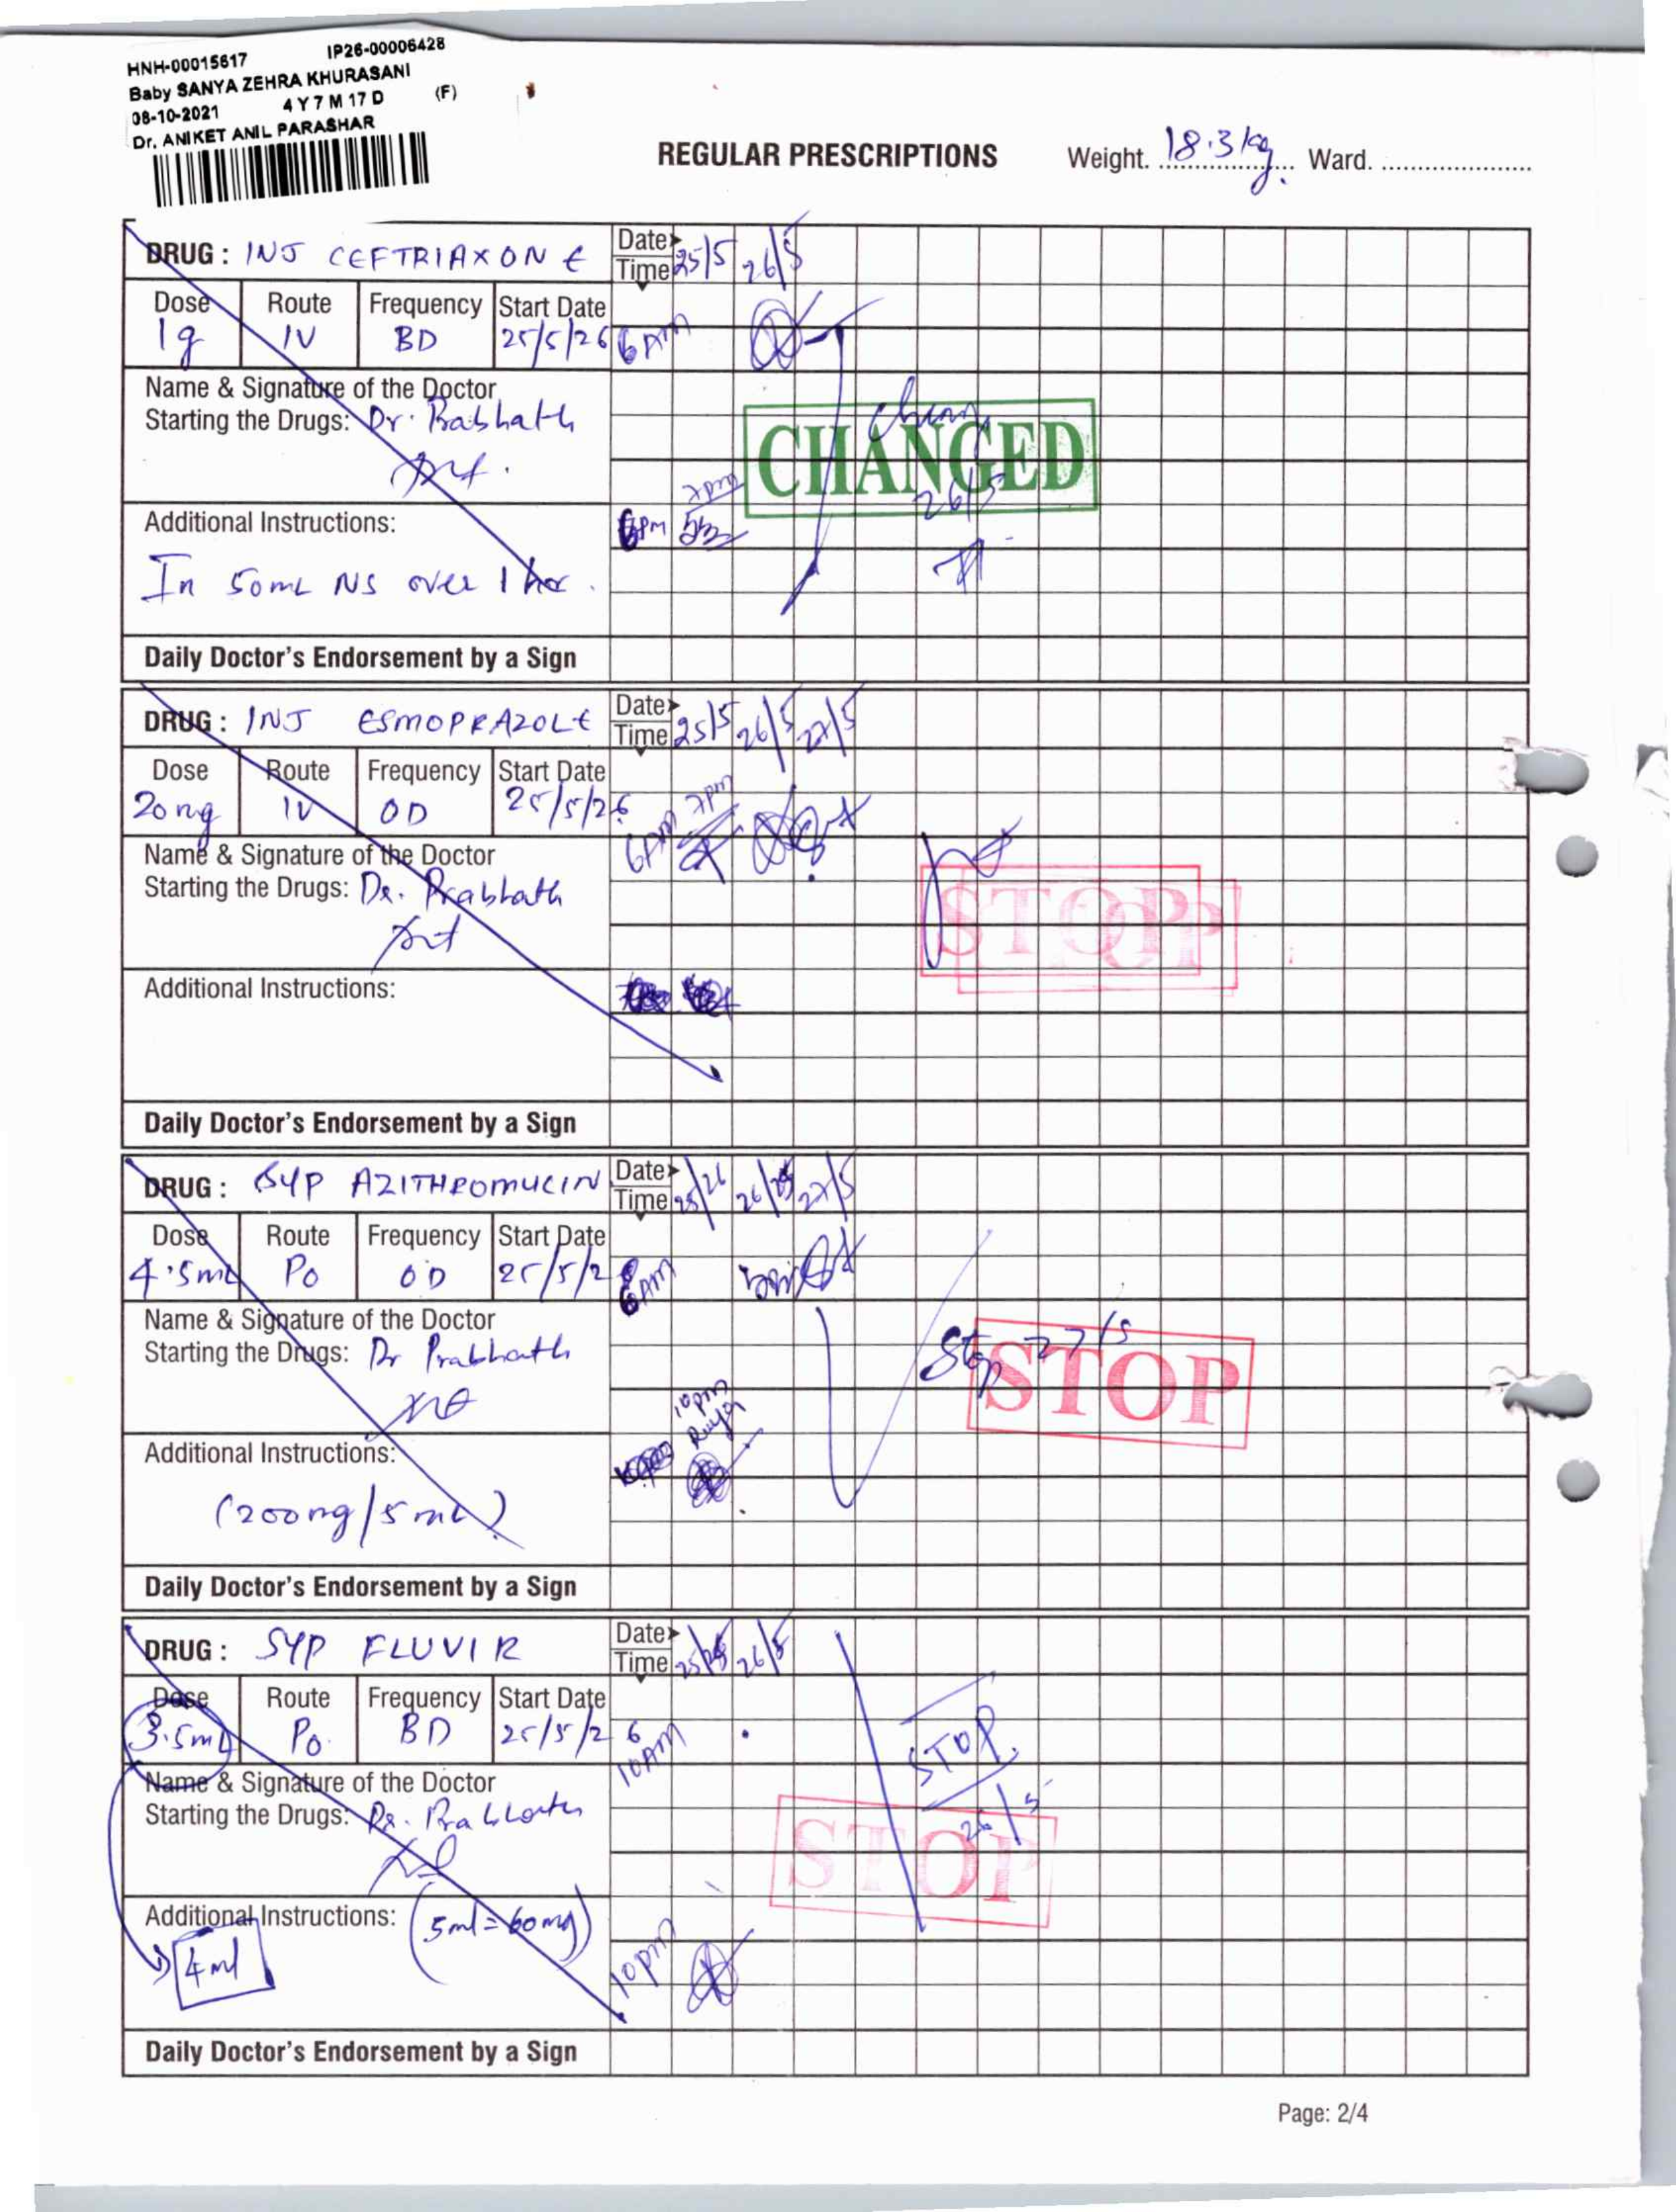 HNH-00015617 IP26-00006428
Baby SANYA ZEHRA KHURASANI
08-10-2021 4 Y 7 M 17 D (F)
Dr. ANIKET ANIL PARASHAR
REGULAR PRESCRIPTIONS Weight. 18.3 kg. Ward.
DRUG : INJ CEFTRIAXONE Date 25/5 26/5
Time
Dose Route Frequency Start Date
1g IV BD 25/5/26 6 AM
Name & Signature of the Doctor
Starting the Drugs: Dr. Prabhath
CHANGED
26/5
7pm
Additional Instructions: 6pm
In 50mL NS over 1 hr.
Daily Doctor's Endorsement by a Sign
DRUG : INJ ESMOPRAZOLE Date 25/5 26/5 27/5
Time
Dose Route Frequency Start Date
20mg IV OD 25/5/26 6AM 7pm
Name & Signature of the Doctor
Starting the Drugs: Dr. Prabhath
STOP
Additional Instructions:
Daily Doctor's Endorsement by a Sign
DRUG : SYP AZITHROMUCIN Date 25/26 26/5 27/5
Time
Dose Route Frequency Start Date
4.5mL PO OD 25/5/2 6AM
Name & Signature of the Doctor
Starting the Drugs: Dr Prabhath
Stop 27/5
STOP
10pm
Additional Instructions:
(200mg/5mL)
Daily Doctor's Endorsement by a Sign
DRUG : SYP FLUVIR Date 25/5 26/5
Time
Dose Route Frequency Start Date
3.5mL PO. BD 25/5/26 10AM
STOP
26/5
Name & Signature of the Doctor
Starting the Drugs: Dr. Prabhath
STOP
Additional Instructions: (5ml = 60mg)
4ml 10pm
Daily Doctor's Endorsement by a Sign
Page: 2/4